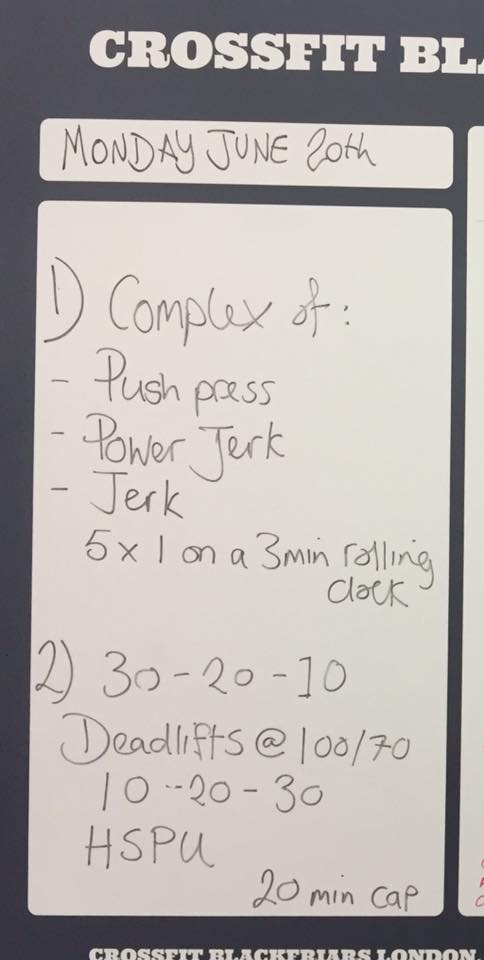 CROSSFIT BL
MONDAY JUNE 20th
1) Complex of:
- Push press
- Power Jerk
- Jerk
5 x 1 on a 3min rolling
clock
2) 30-20-10
Deadlifts @ 100/70
10-20-30
HSPU
20 min cap
CROSSFIT BLACKFRIARS LONDON.